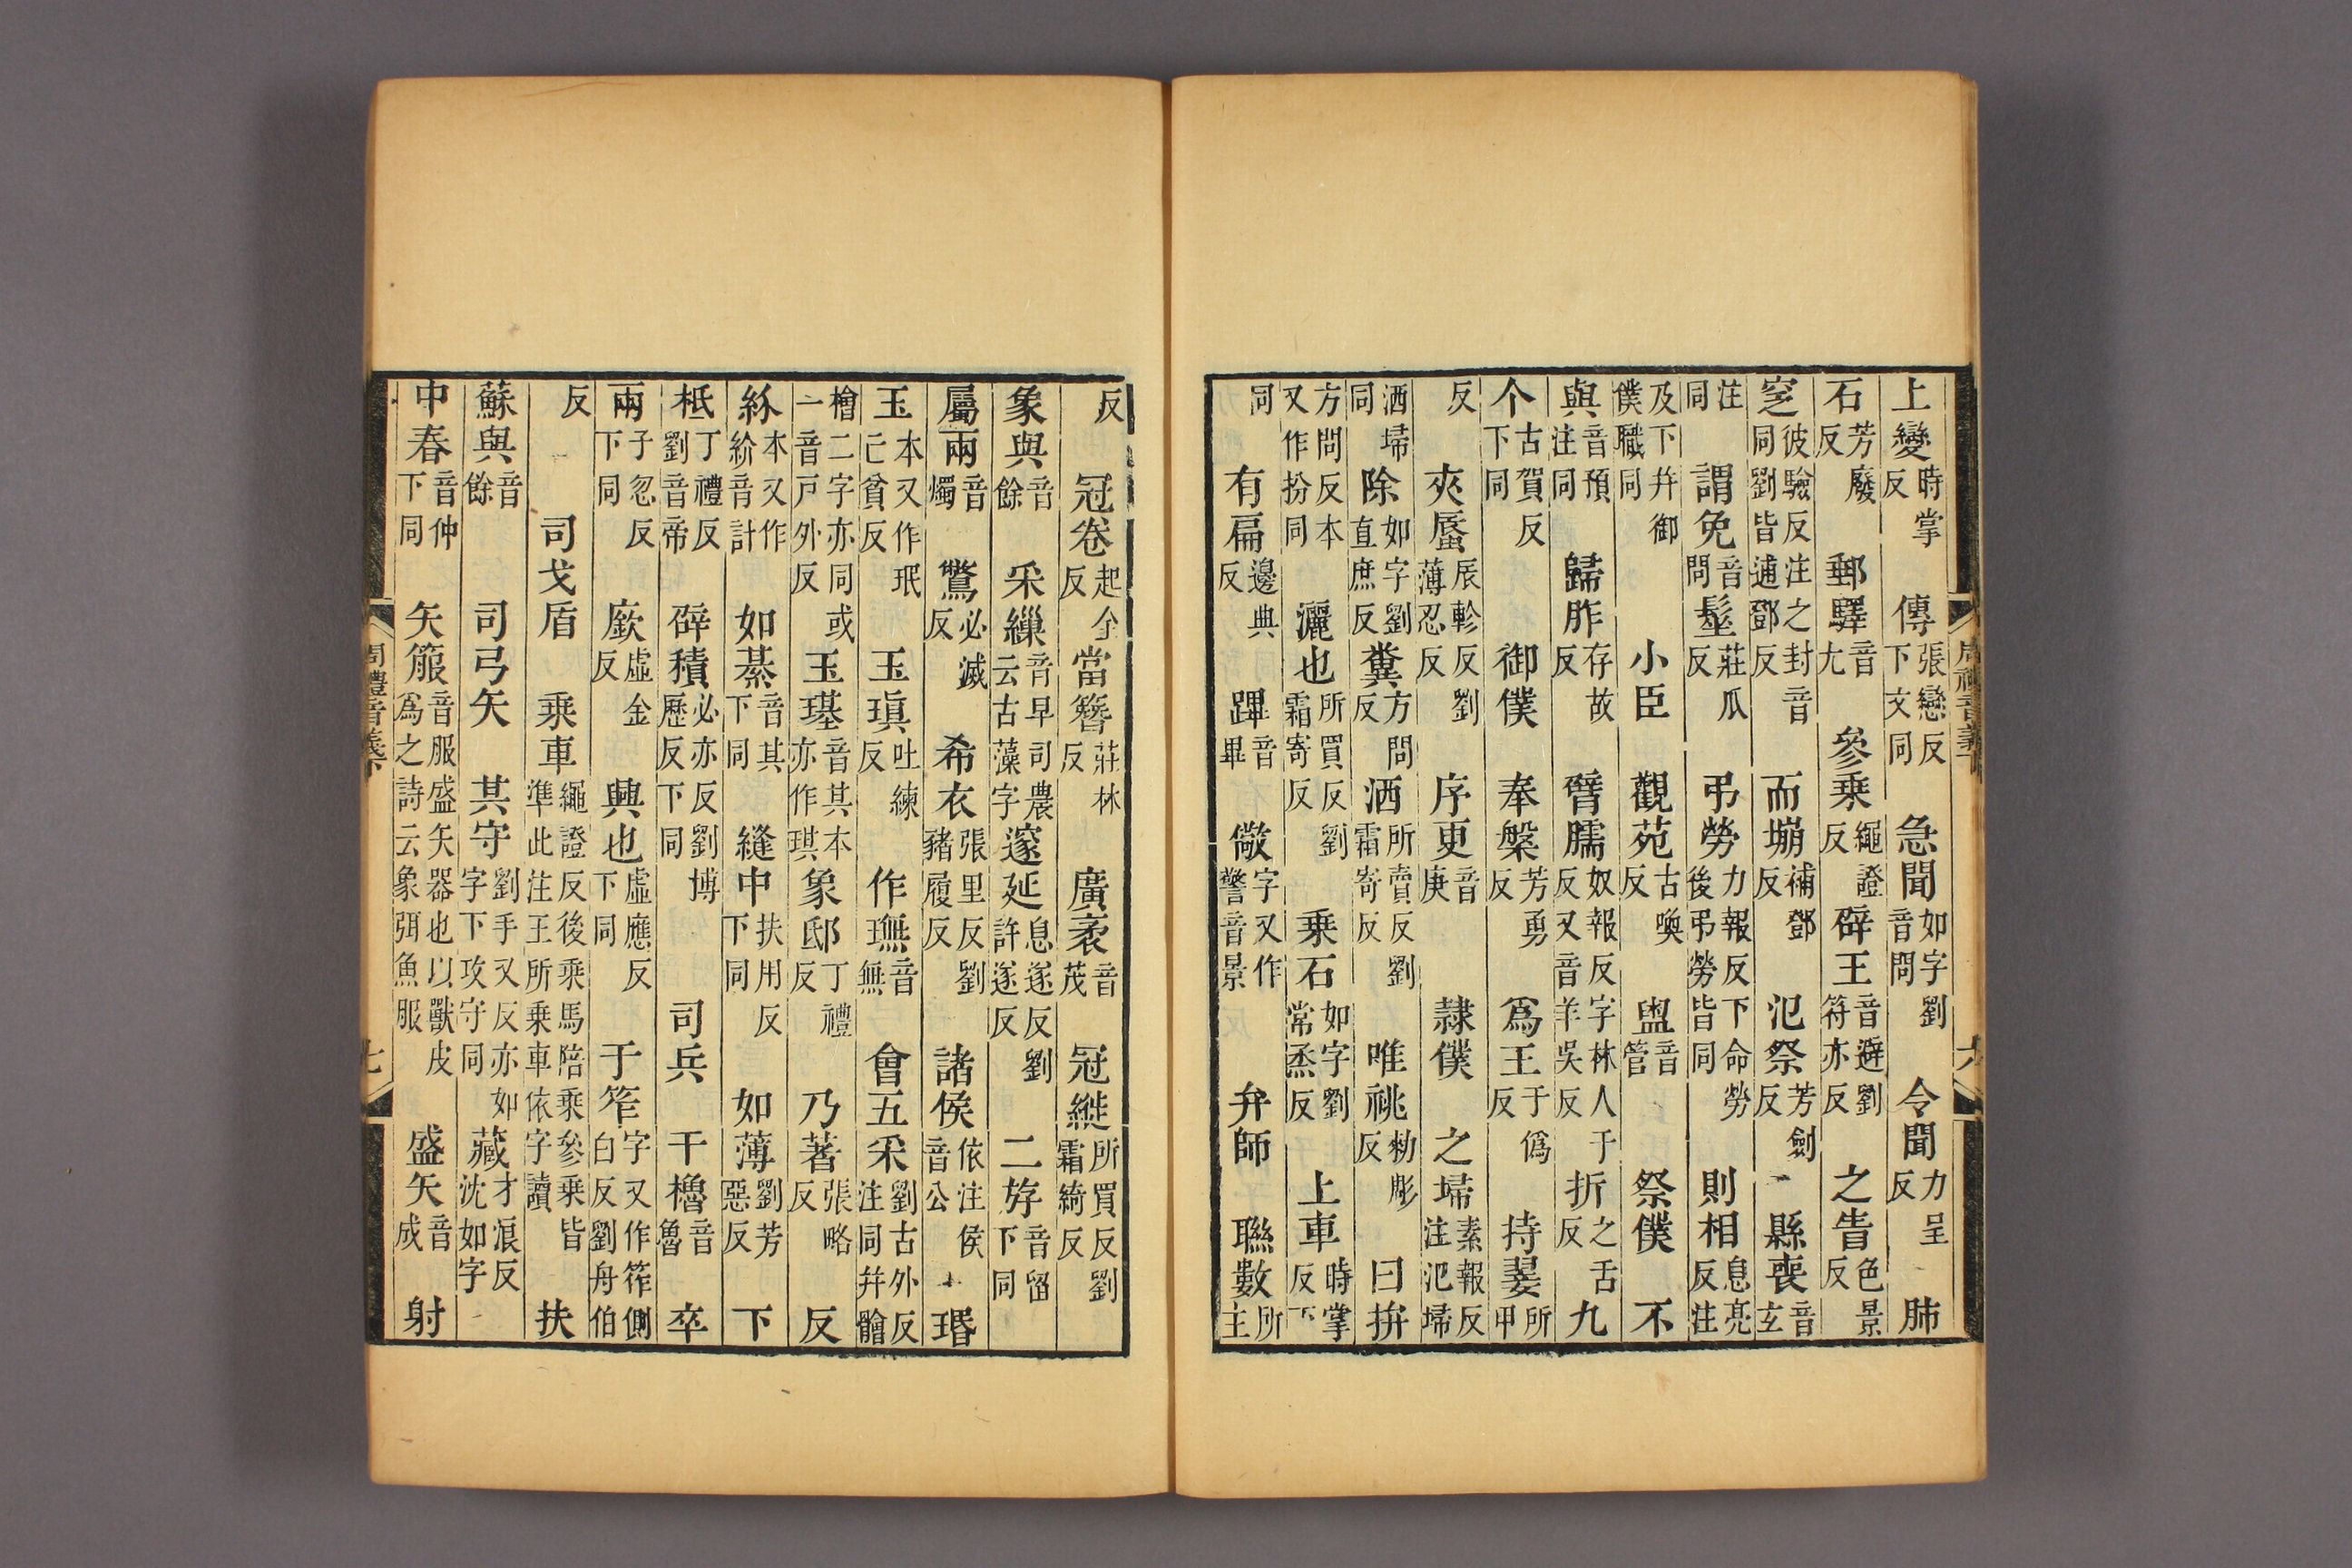 上變時掌反傳張戀反下文同急聞如字劉音問令聞力呈反肺
石芳廢反郵驛音尤參乘繩證反辟王音避劉符亦反之眚色景反
窆彼驗反注之封音同劉皆逋鄧反而塴補鄧反氾祭芳劍反縣喪音玄
注同謂免音問髽莊瓜反弔勞力報反下命勞後弔勞皆同則相息亮反注
及下幷御僕職同小臣觀苑古喚反盥音管祭僕不
與音預注同歸胙存故反臂臑奴報反字林人于反又音羊吳反折之舌反九
个古賀反下同御僕奉槃芳勇反爲王于僞反持翣所甲
反夾蜃辰軫反劉薄忍反序更音庚隸僕之埽素報反注氾埽
洒埽同除如字劉直庶反糞方問反洒所賣反劉霜寄反唯祧勑彫反曰拚
方問反本又作扮同灑也所買反劉霜寄反乗石如字劉常烝反上車時掌反下
同有扁邊典反蹕音畢儆字又作警音景弁師聯數所主
周禮音義下 六
反冠卷起全反當簪莊林反廣袤音茂冠縰所買反劉霜綺反
象與音餘采繅音早司農云古藻字邃延息遂反劉許遂反二斿音留下同
屬兩音燭鷩必滅反希衣張里反劉豬履反諸侯依注音公侯瑉
玉本又作珉亡貧反玉瑱吐練反作璑音無會五采劉古外反注同幷䯤
檜二字亦同或一音戸外反玉璂音其本亦作琪象邸丁禮反乃著張略反反
紒本又作紒音計如綦音其下同縫中扶用反下同如薄劉芳惡反下
柢丁禮反劉音帝辟積必亦反劉博歷反下同司兵干櫓音魯卒
兩子忽反下同廞虛金反興也虛應反下同于笮字又作筰側白反劉舟伯
反司戈盾乗車繩證反後乗馬陪乗參乗皆準此注王所乗車依字讀扶
蘇與音餘司弓矢其守劉手又反亦如字下攻守同藏才浪反沈如字
中春音仲下同矢箙音服盛矢器也以獸皮爲之詩云象弭魚服盛矢音成射
周禮音義下 七